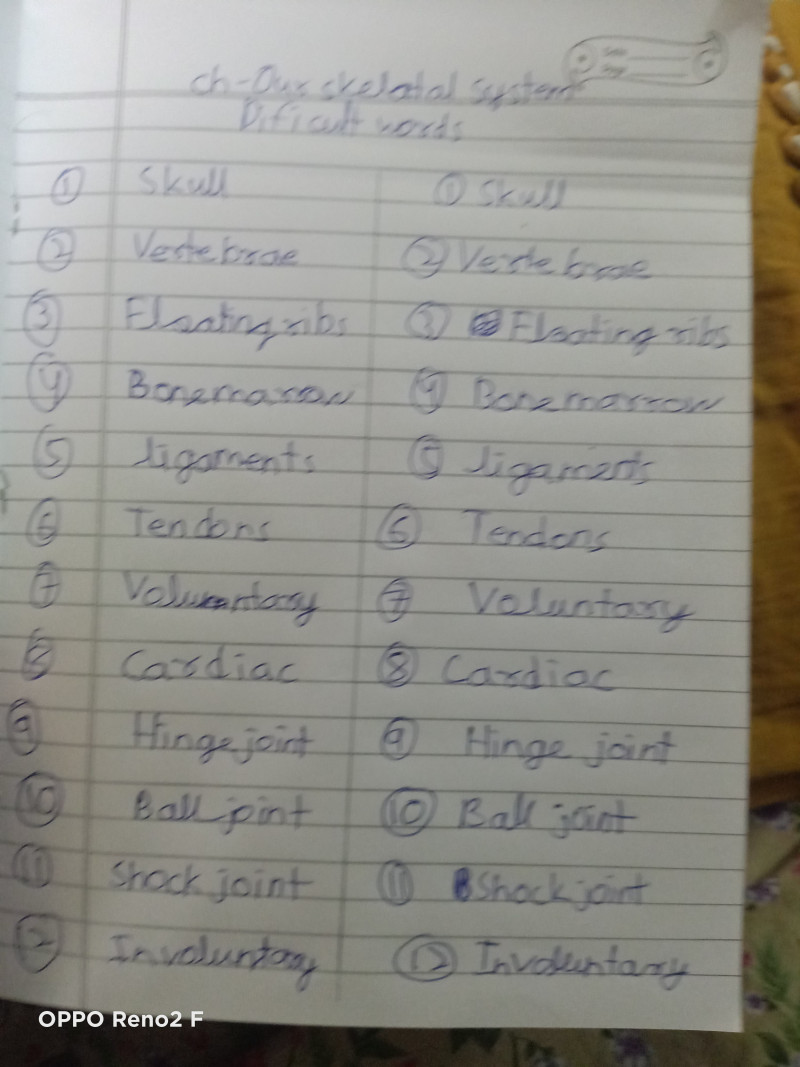 ch-Our skelatal system
Dificult words
① Skull ① Skull
② Vertebrae ② Vertebrae
③ Floating ribs ③ Floating ribs
④ Bonemarrow ④ Bonemarrow
⑤ ligaments ⑤ ligaments
⑥ Tendons ⑥ Tendons
⑦ Voluntary ⑦ Voluntary
⑧ Cardiac ⑧ Cardiac
⑨ Hinge joint ⑨ Hinge joint
⑩ Ball joint ⑩ Ball joint
⑪ Shock joint ⑪ Shock joint
⑫ Involuntary ⑫ Involuntary
OPPO Reno2 F